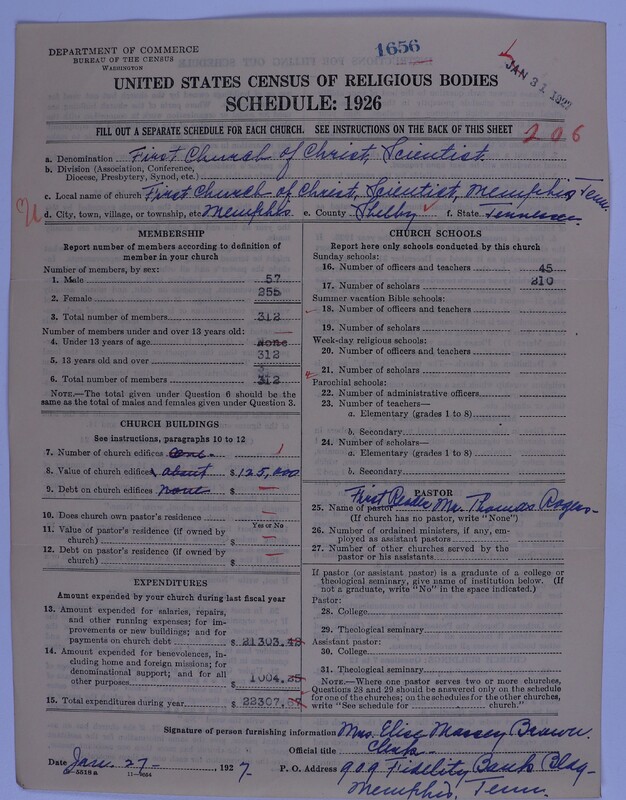 DEPARTMENT OF COMMERCE
BUREAU OF THE CENSUS
WASHINGTON
1656
JAN 31 1927
UNITED STATES CENSUS OF RELIGIOUS BODIES
SCHEDULE: 1926
FILL OUT A SEPARATE SCHEDULE FOR EACH CHURCH. SEE INSTRUCTIONS ON THE BACK OF THIS SHEET
206
a. Denomination First Church of Christ, Scientist.
b. Division (Association, Conference,
Diocese, Presbytery, Synod, etc.)
c. Local name of church First Church of Christ, Scientist, Memphis, Tenn.
d. City, town, village, or township, etc. Memphis e. County Shelby f. State Tennessee
MEMBERSHIP
Report number of members according to definition of
member in your church
Number of members, by sex:
1. Male 57
2. Female 255
3. Total number of members 312
Number of members under and over 13 years old:
4. Under 13 years of age none
5. 13 years old and over 312
6. Total number of members 312
NOTE.—The total given under Question 6 should be the
same as the total of males and females given under Question 3.
CHURCH BUILDINGS
See instructions, paragraphs 10 to 12
7. Number of church edifices one 1
8. Value of church edifices about $125,000
9. Debt on church edifices none $ —
10. Does church own pastor's residence —
Yes or No
11. Value of pastor's residence (if owned by
church) $ —
12. Debt on pastor's residence (if owned by
church) $ —
EXPENDITURES
Amount expended by your church during last fiscal year
13. Amount expended for salaries, repairs,
and other running expenses; for im-
provements or new buildings; and for
payments on church debt $ 21303.
14. Amount expended for benevolences, in-
cluding home and foreign missions; for
denominational support; and for all
other purposes $ 1004.
15. Total expenditures during year $ 22307.
CHURCH SCHOOLS
Report here only schools conducted by this church
Sunday schools:
16. Number of officers and teachers 45
17. Number of scholars 210
Summer vacation Bible schools:
18. Number of officers and teachers
19. Number of scholars
Week-day religious schools:
20. Number of officers and teachers
21. Number of scholars
Parochial schools:
22. Number of administrative officers
23. Number of teachers—
a. Elementary (grades 1 to 8)
b. Secondary
24. Number of scholars—
a. Elementary (grades 1 to 8)
b. Secondary
PASTOR
25. Name of pastor First Reader Mr. Thomas Rogers
(If church has no pastor, write "None")
26. Number of ordained ministers, if any, em-
ployed as assistant pastors
27. Number of other churches served by the
pastor or his assistants
If pastor (or assistant pastor) is a graduate of a college or
theological seminary, give name of institution below. (If
not a graduate, write "No" in the space indicated.)
Pastor:
28. College
29. Theological seminary
Assistant pastor:
30. College
31. Theological seminary
NOTE.—Where one pastor serves two or more churches,
Questions 28 and 29 should be answered only on the schedule
for one of the churches; on the schedules for the other churches,
write "See schedule for church."
Signature of person furnishing information Mrs. Elise Massey Brown.
Official title Clerk
Date Jan. 27 1927. P. O. Address 909 Fidelity Bank Bldg
Memphis, Tenn.